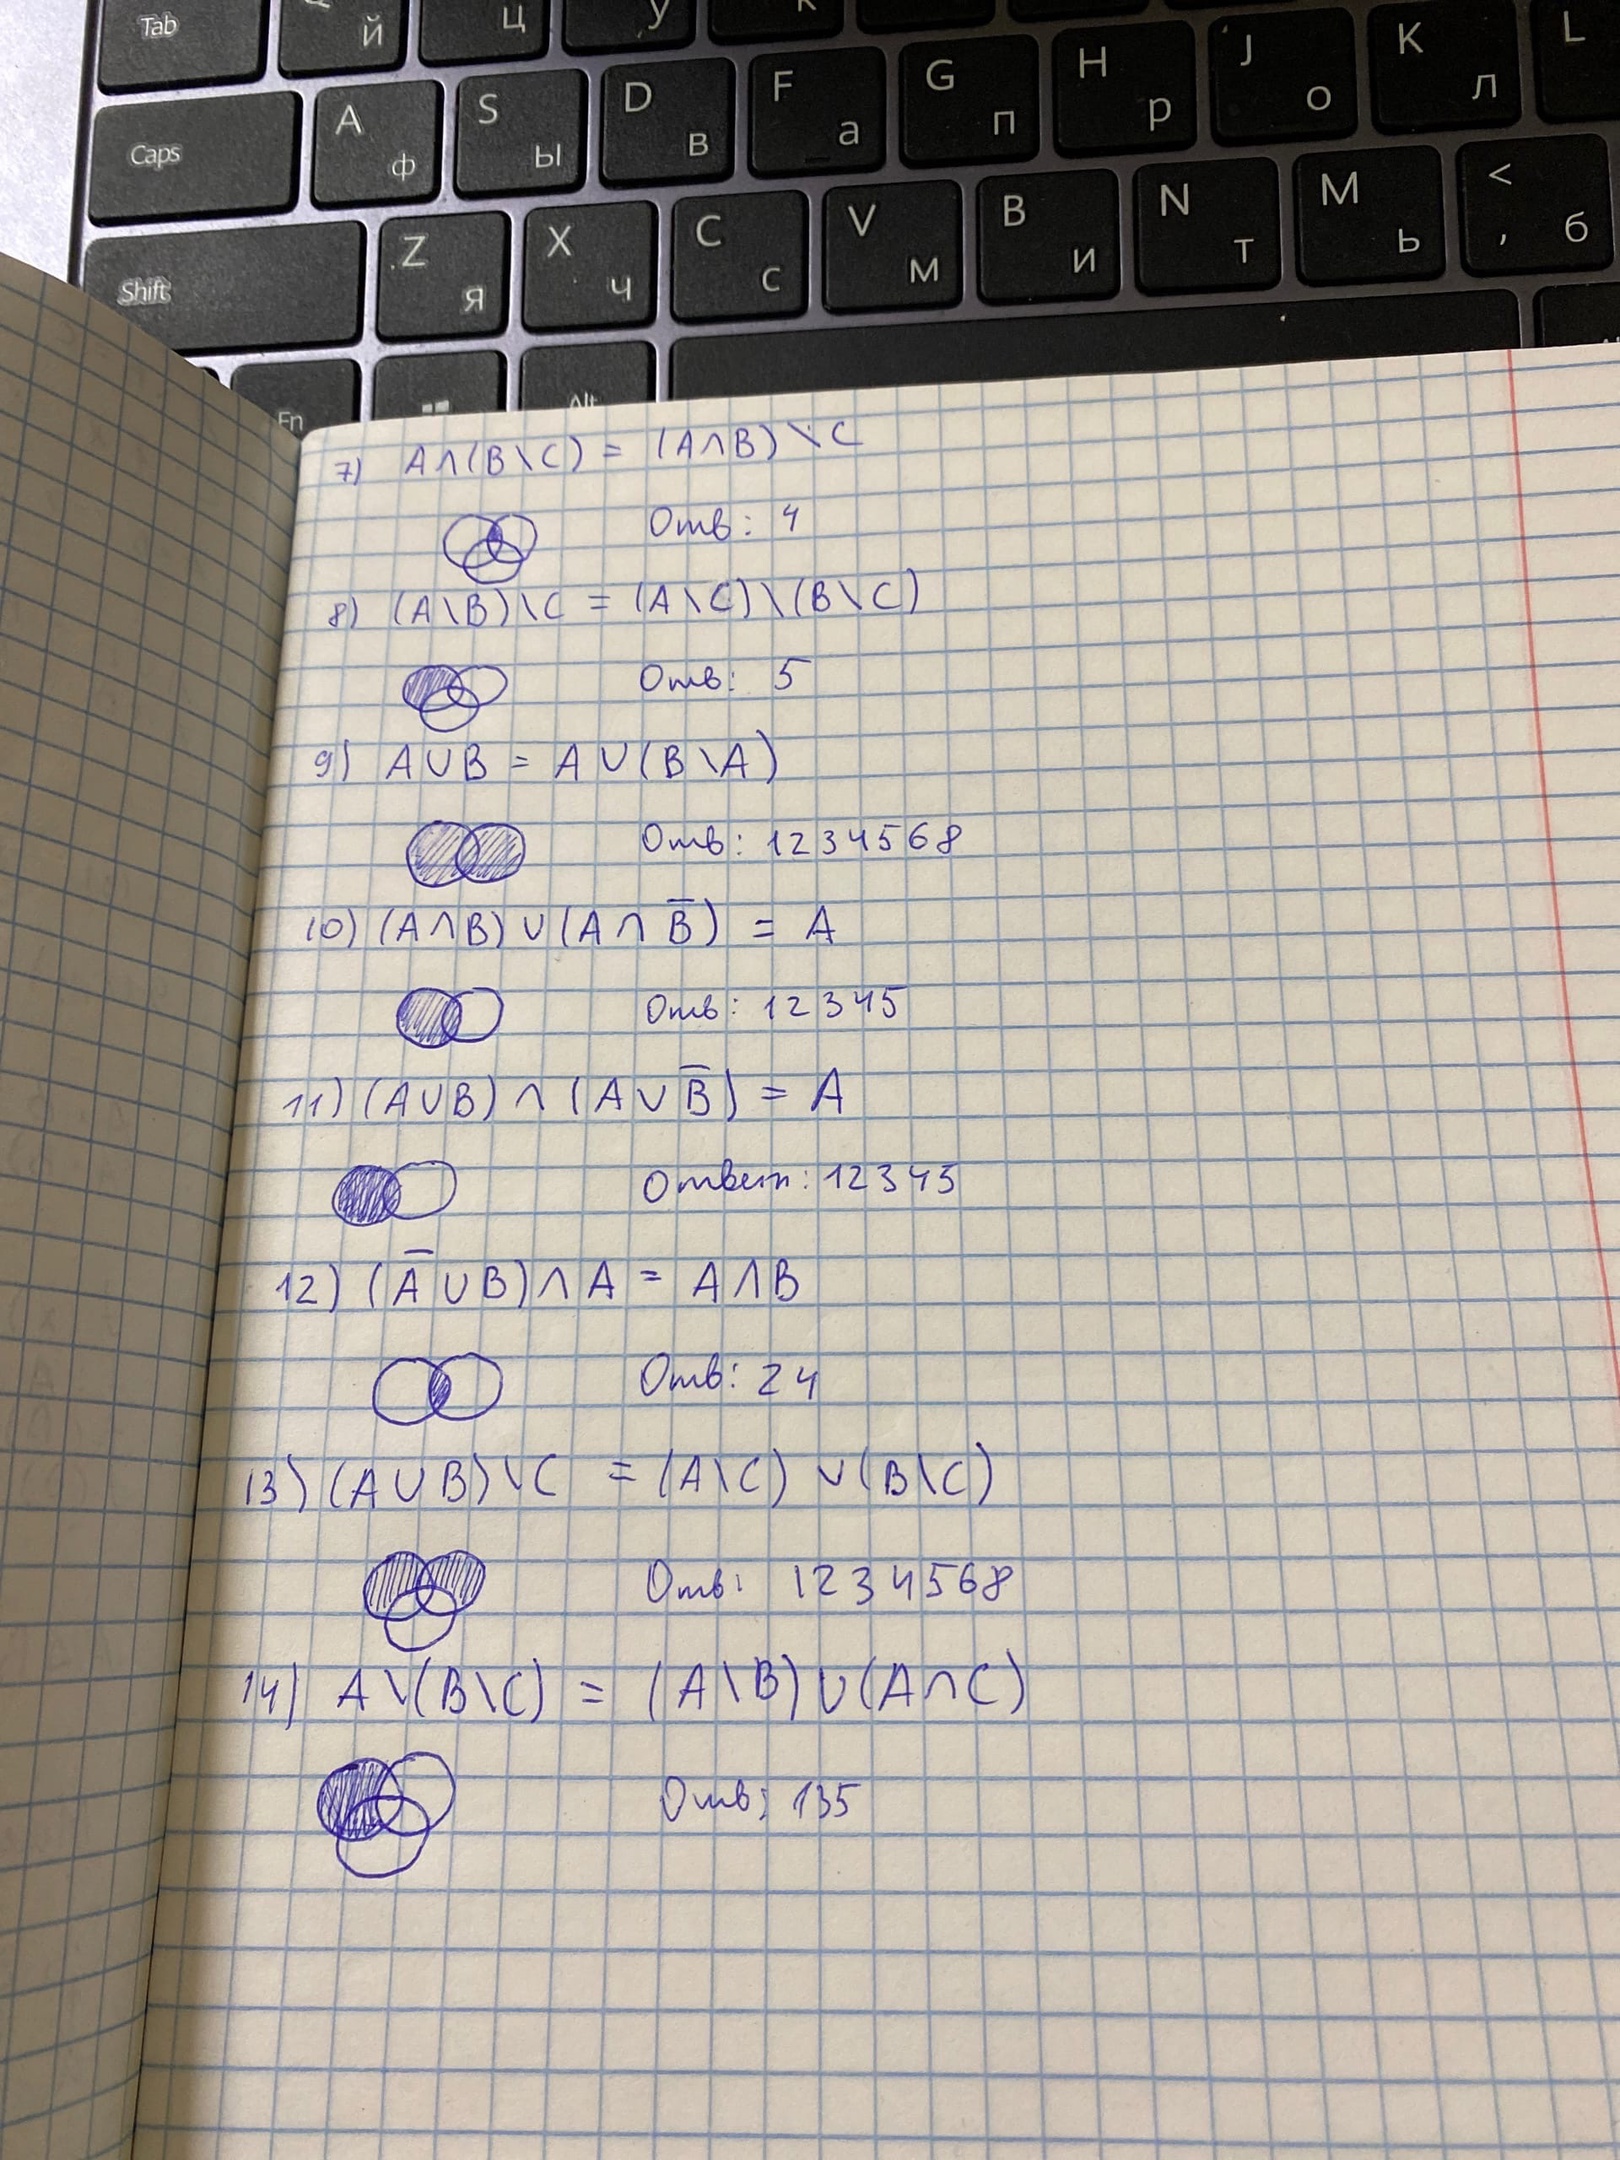 Tab Й Ц У К
Caps A Ф S Ы D В F А G П H Р J О K Л L
Shift Z Я X Ч C С V М B И N Т M Ь < , Б
Fn Alt
7) A∩(B\C) = (A∩B)\C
Отв: 4
8) (A\B)\C = (A\C)\(B\C)
Отв: 5
9) A∪B = A∪(B\A)
Отв: 1234568
10) (A∩B)∪(A∩B̅) = A
Отв: 12345
11) (A∪B)∩(A∪B̅) = A
Ответ: 12345
12) (A̅∪B)∩A = A∩B
Отв: 24
13) (A∪B)\C = (A\C)∪(B\C)
Отв: 1234568
14) A\(B\C) = (A\B)∪(A∩C)
Отв: 135